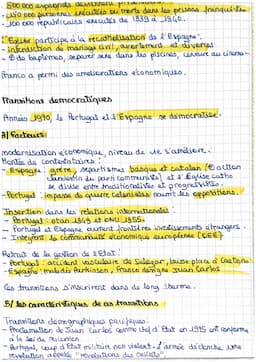 - 500 000 espagnols deviennent
- 150 000 personnes exécutées ou mortes dans les prisons franquistes
- 100 000 républicains exécutés de 1939 à 1940.
- Eglise participe à la recatholisation de l'Espagne".
- Interdiction de mariage civil, avortement et divorces
- 0 de baptêmes, séparer sexe dans les piscines, censure au cinéma -
Franco a permi des améliorations économiques.
Transitions démocratiques
Années 1970, le Portugal et l'Espagne se démocratise.
A/ Facteurs
modernisation économique, niveau de vie s'améliore.
Montée des contestataires :
- Espagne : grève, séparatismes basque et catalan (action
clandestin du parti communiste) et l'Église catho
se divise entre traditionalistes et progressistes.
- Portugal : impasse de guerre coloniales nourrit les oppositions.
Insertion dans les relations internationales :
- Portugal : otan 1949 et ONU 1955.
- Portugal et Espagne ouvrent frontières investissements étrangers.
- Intègrent la communauté économique européenne (CEE)
Retrait de la gestion de l'Etat :
- Portugal : accident vasculaire de Salazar, laisse place à Caetano
- Espagne : maladie Parkinson, Franco désigne Juan Carlos
Ces transitions s'inscrivent dans du long terme.
B/ Les caractéristiques de ces transitions
Transitions démographiques pacifiques :
- Proclamation de Juan Carlos comme chef d'Etat en 1975 est conforme
à la loi de succession
- Portugal, coup d'Etat militaire non violent. L'armée déclenche une
révolution appelée "révolutions des Œillets".